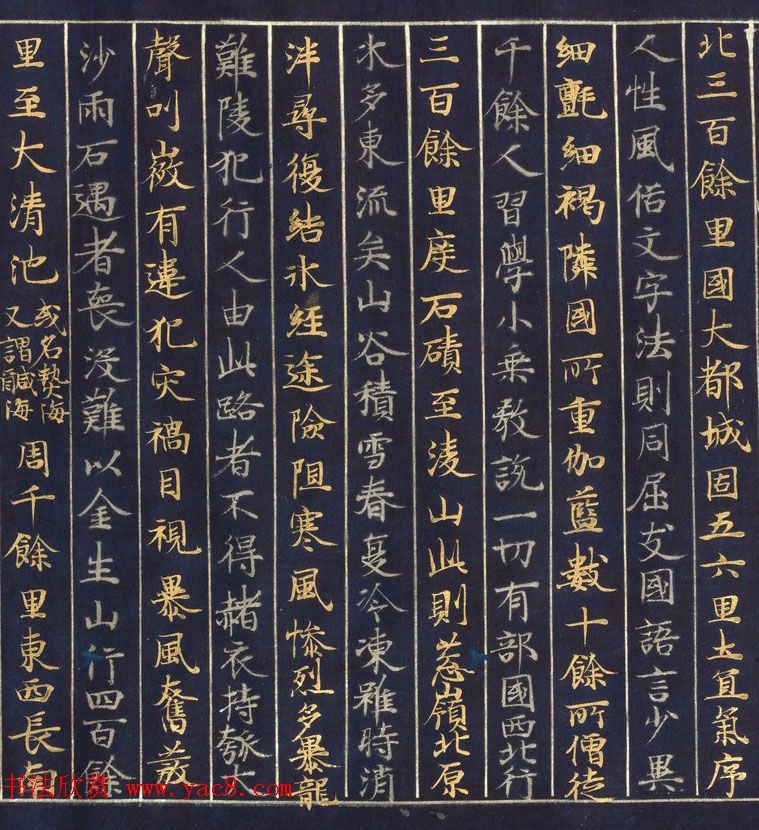 北三百餘里國大都城固五六里土宜氣序
人性風俗文字法則同屈支國語言少異
細氎細褐隣國所重伽藍數十餘所僧徒
千餘人習學小乗教説一切有部國西北行
三百餘里度石磧至淩山此則葱嶺北原
水多東流矣山谷積雪春夏冷凍雖時消
泮尋復結氷經途險阻寒風慘烈多暴龍
難陵犯行人由此路者不得赭衣持瓠大
聲叫 有違犯灾禍目視暴風奮發
沙雨石遇者喪没難以全生山行四百餘
里至大清池
或名熱海
又謂鹹海
周千餘里東西長南
书法欣赏 www.yac8.com